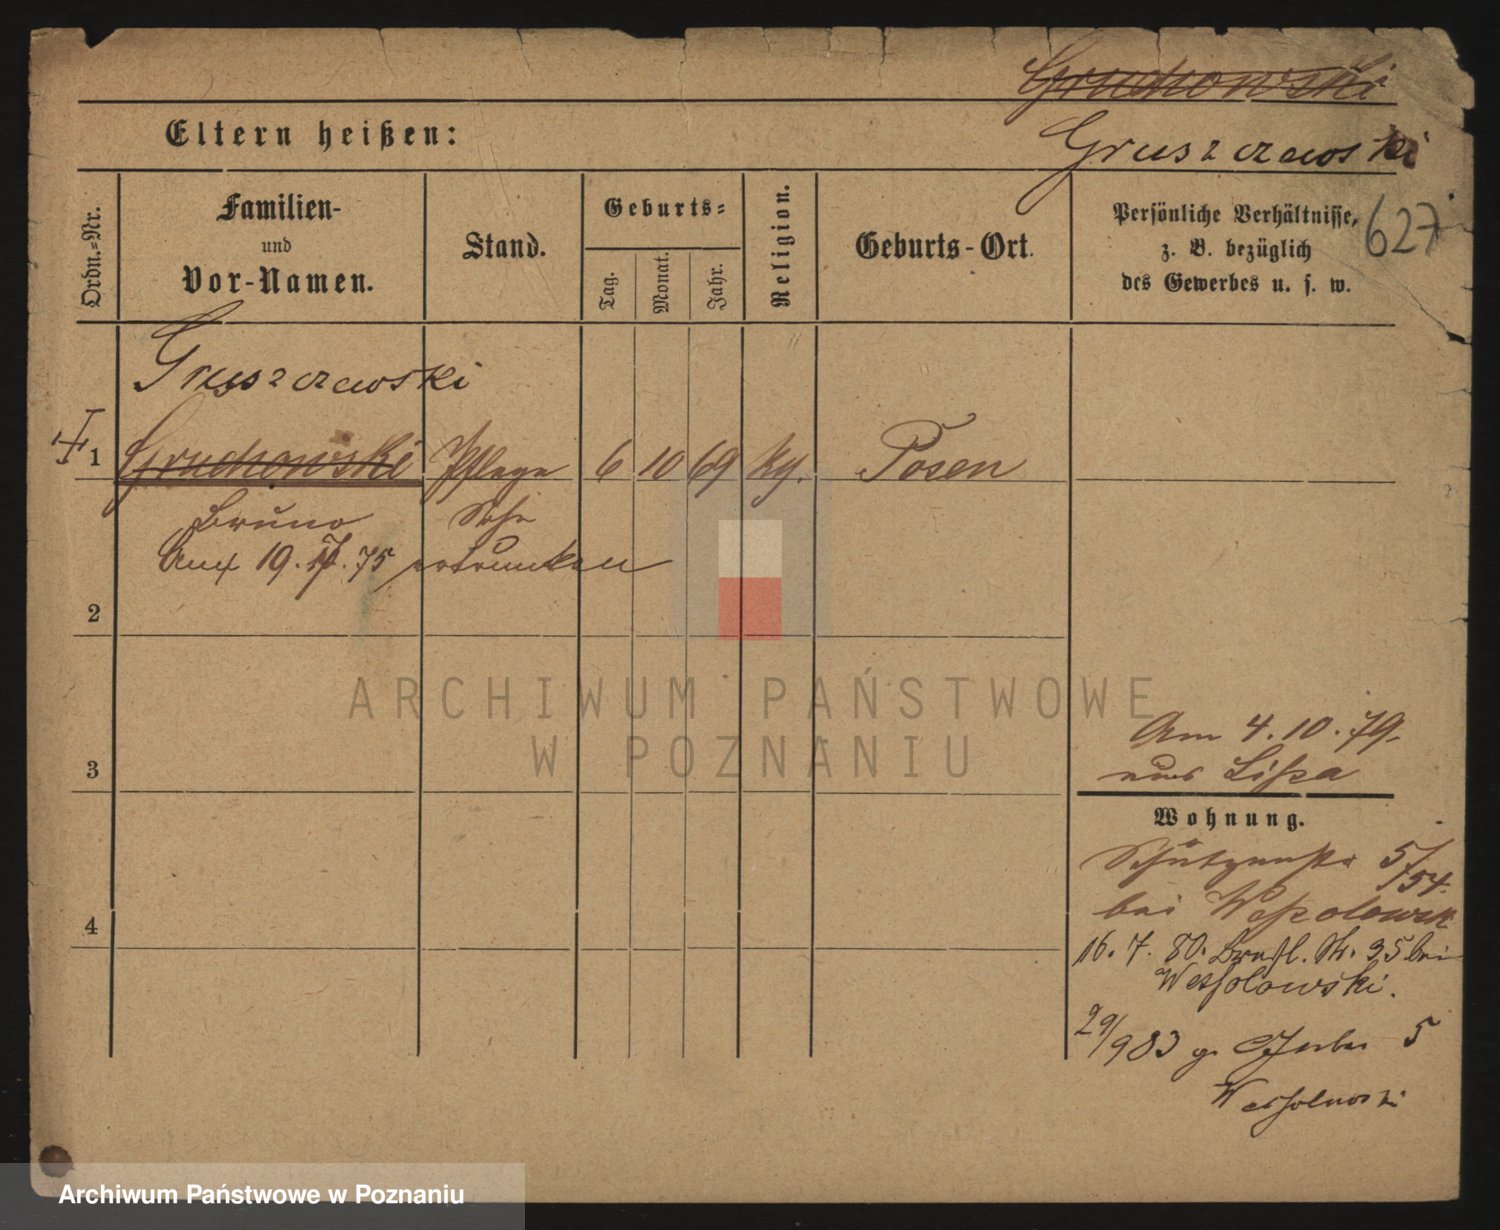 Gruchowski
Eltern heißen:
Gruszczewski
Ordn.=Nr.
Familien-
und
Vor-Namen.
Stand.
Geburts=
Tag.
Monat.
Jahr.
Religion.
Geburts-Ort.
Persönliche Verhältnisse,
z. B. bezüglich
des Gewerbes u. s. w.
627
Gruszczewski
1 Gruchowski Pflege 6 10 69 kth. Posen
Bruno Sohn
Am 19. 7. 75 ertrunken
2
ARCHIWUM PAŃSTWOWE
W POZNANIU
3
Am 4. 10. 79.
aus Lissa
Wohnung.
Schützenstr 5/54.
bei Wessolowski
4
16. 7. 80. Bresl. Str. 35 bei
Wessolowski.
29/9 83 Gerber 5
Wessolowski
Archiwum Państwowe w Poznaniu